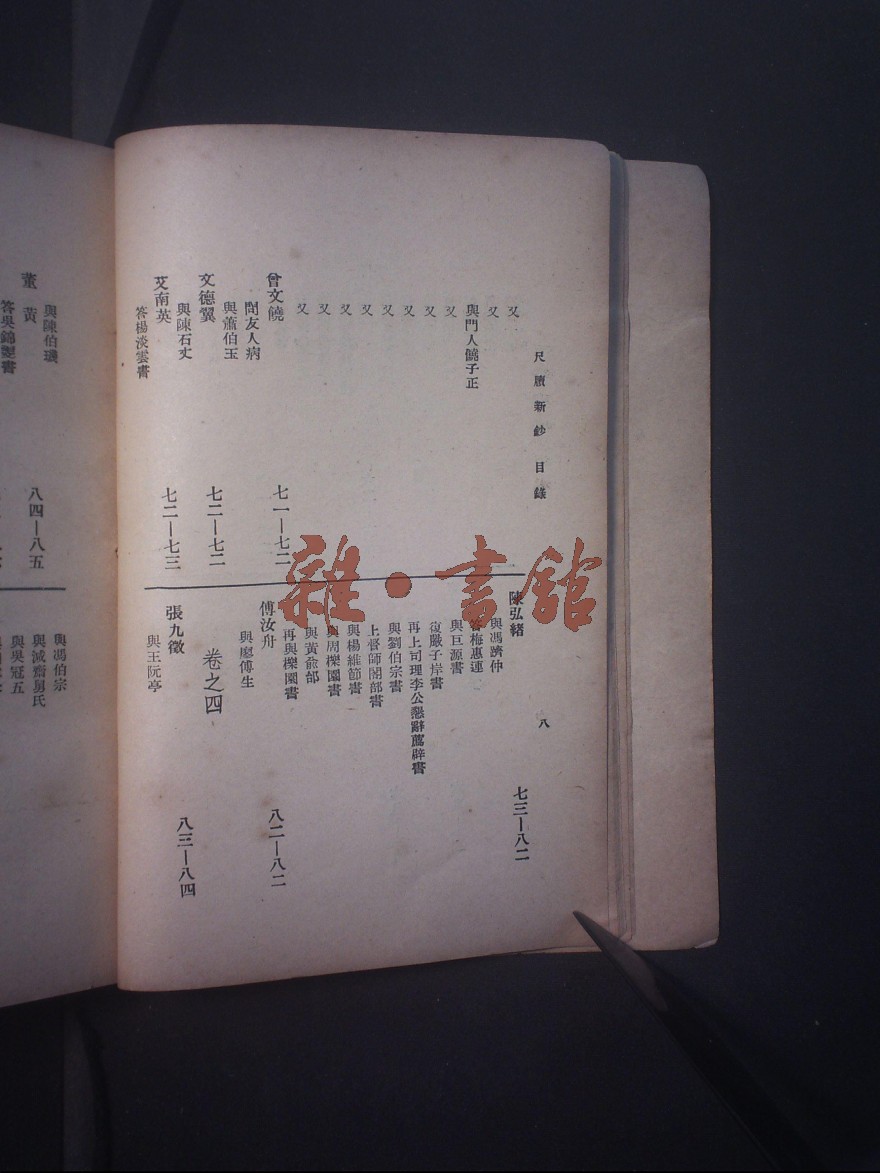 尺牘新鈔 目錄
八
又
又
與門人饒子正
又
又
又
又
又
又
又
又
曾文饒 七一—七二
問友人病
與蕭伯玉
文德翼 七二—七二
與陳石丈
艾南英 七二—七三
答楊淡雲書
陳弘緒 七三—八二
與馮躋仲
答梅惠連
與巨源書
復嚴子岸書
再上司理李公懇辭薦辟書
與劉伯宗書
上督師閣部書
與楊維節書
與周櫟園書
與黃俞邰
再與櫟園書
傅汝舟 八二—八二
與廖傅生
卷之四
張九徵 八三—八四
與王阮亭
與陳伯璣
董黃 八四—八五
與馮伯宗
與減齋舅氏
與吳冠五
雜·書館